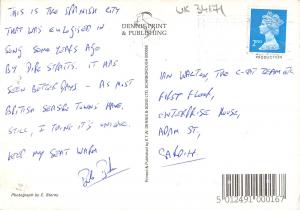 THIS IS THE SPANISH CITY
THAT WAS EULOGISED IN
SONG SOME YEARS AGO
BY DIRE STRAITS. IT HAS
SEEN BETTER DAYS - AS MOST
BRITISH SEASIDE TOWNS HAVE.
STILL, I THINK IT'S UNIQUE.
KEEP MY SEAT WARM
Photograph by E. Storey
DENNIS PRINT
& PUBLISHING
Printed & Published by E.T.W. DENNIS & SONS LTD. SCARBOROUGH
UK 34171
2ND
IAN WALTON, THE C-CAT TEAM
FIRST FLOOR,
ENTERPRISE HOUSE,
ADAM ST,
CARDIFF.
5 012491 000167